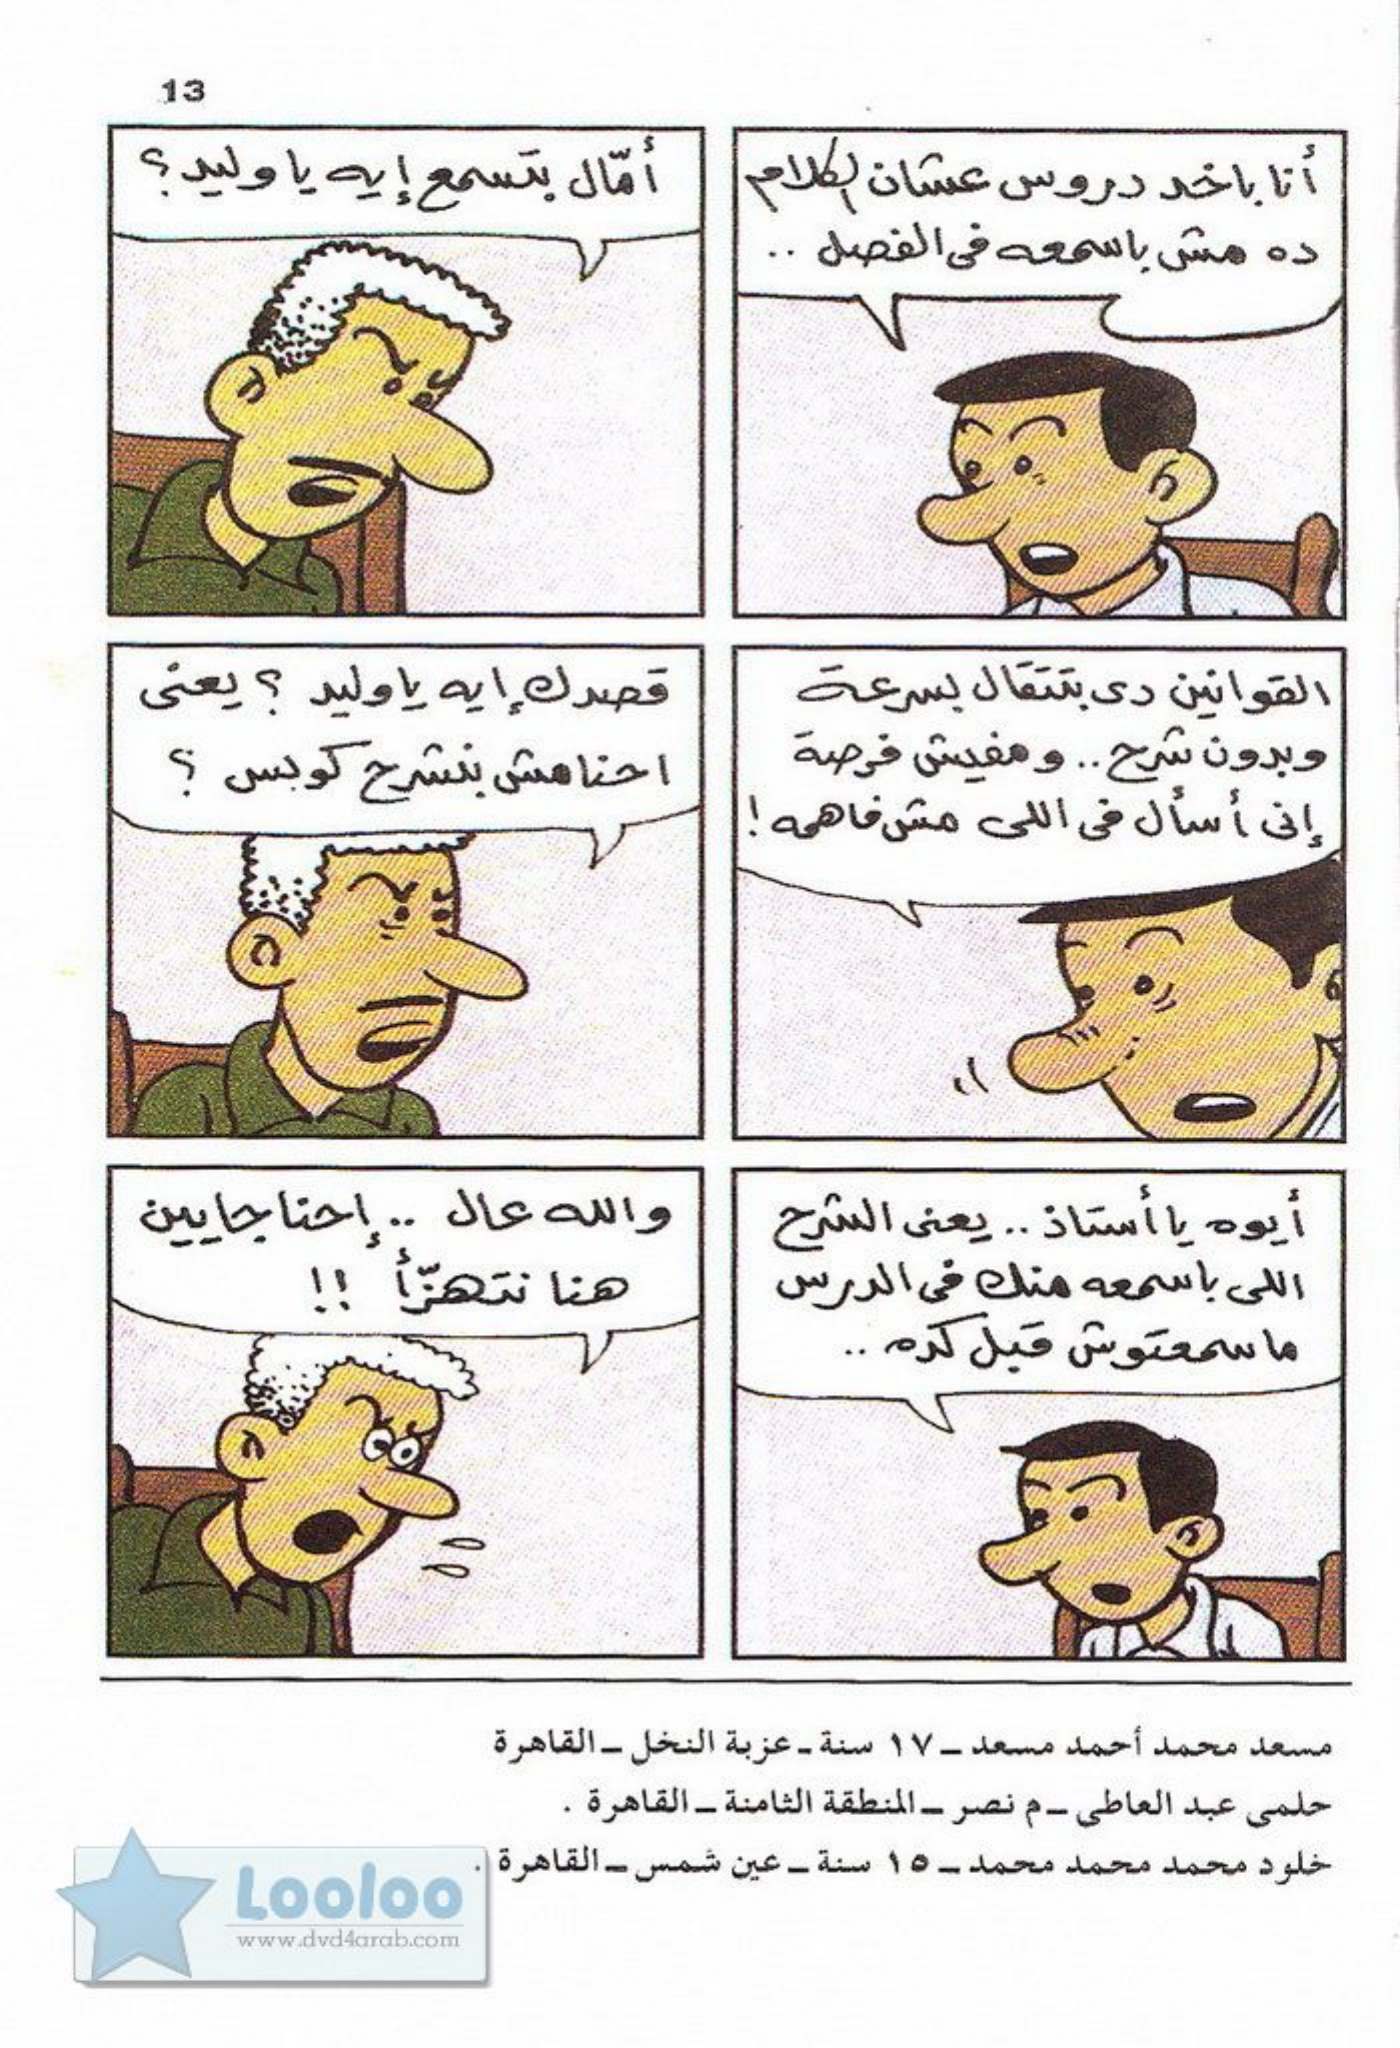 13
أنا باخد دروس عشان الكلام
ده مش باسمعه فى الفصل ..
أمّال بتسمع إيه يا وليد ؟
القوانين دى بتتقال بسرعة
وبدون شرح .. ومفيش فرصة
إنى أسأل فى اللى مش فاهمه !
قصدك إيه يا وليد ؟ يعنى
احنا مش بنشرح كويس ؟
أيوه يا أستاذ .. يعنى الشرح
اللى باسمعه منك فى الدرس
ما سمعتوش قبل كده ..
والله عال .. إحنا جايين
هنا نتهزّأ !!
مسعد محمد أحمد مسعد ــ ١٧ سنة ـ عزبة النخل ــ القاهرة
حلمى عبد العاطى ــ م نصر ــ المنطقة الثامنة ــ القاهرة .
خلود محمد محمد محمد ــ ١٥ سنة ــ عين شمس ــ القاهرة .
Looloo
www.dvd4arab.com